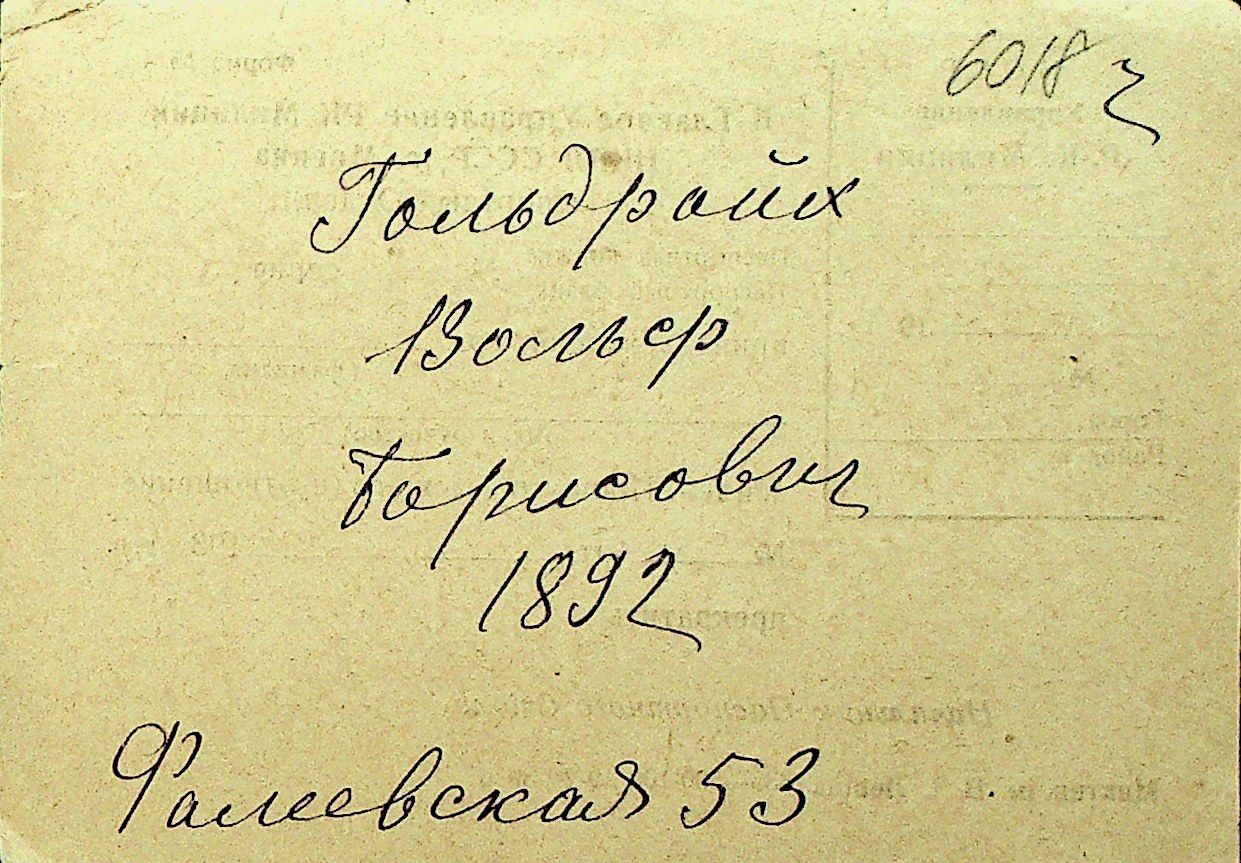 6018 ч
Гольдрайх
Вольф
Борисович
1892
Фалеевская 53